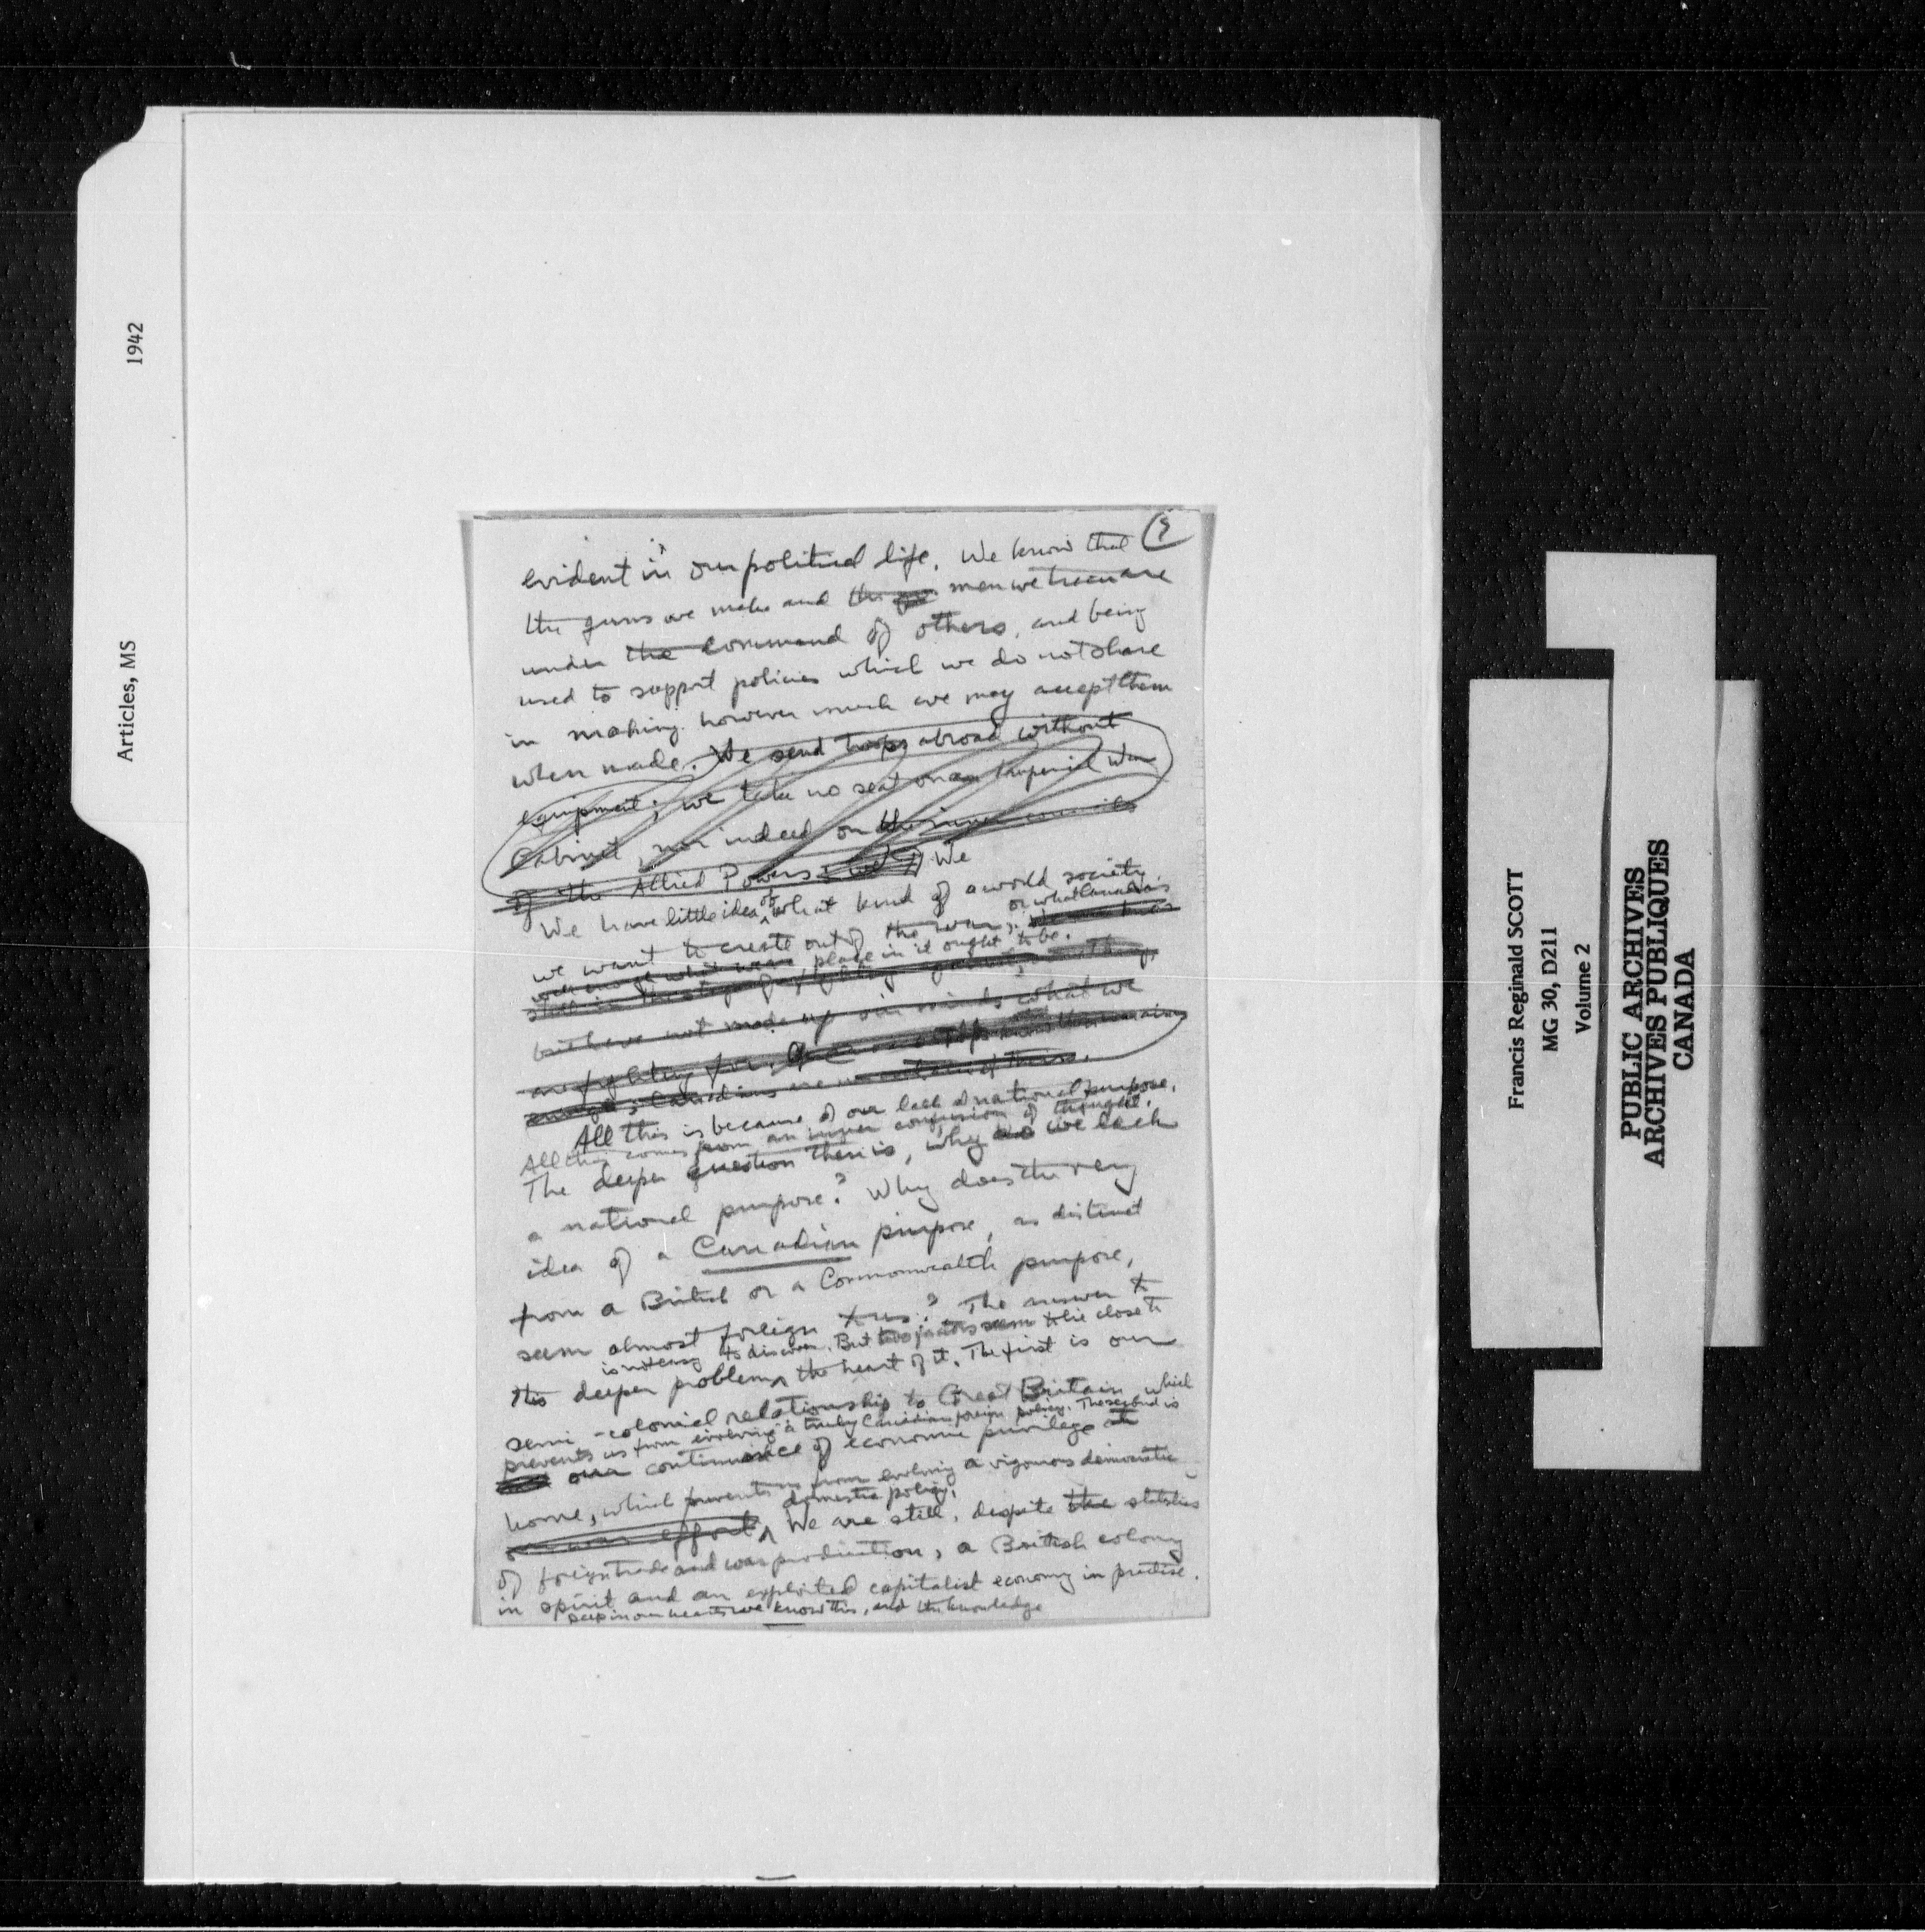 1942
Articles, MS
evident in our political life. We know that
the guns we make and the men we train are
under the command of others, and being
used to support policies which we do not share
in making however much we may accept them
when made. We send troops abroad without
equipment; we take no seat on an Imperial War
Cabinet, nor indeed on the inner councils
of the Allied Powers; We
We have little idea of what kind of a world society
or what Canada's
we want to create out of the war;
place in it ought to be.
but have not made up our minds what we
are fighting for.
All this is because of our lack of national purpose.
All this comes from an inner confusion of thought.
The deeper question then is, why do we lack
a national purpose? Why does the very
idea of a Canadian purpose, as distinct
from a British or a Commonwealth purpose,
seem almost foreign to us? The answer to
is not easy to discover. But two factors seem to lie close to
this deeper problem the heart of it. The first is our
semi-colonial relationship to Great Britain, which
prevents us from evolving a truly Canadian foreign policy. The second is
our continuance of economic privilege at
home, which prevents us from evolving a vigorous democratic
domestic policy.
our war effort We are still, despite the statistics
of foreign trade and war production, a British colony
in spirit and an exploited capitalist economy in practise.
Deep in our hearts we know this, and the knowledge
Francis Reginald SCOTT
MG 30, D211
Volume 2
PUBLIC ARCHIVES
ARCHIVES PUBLIQUES
CANADA